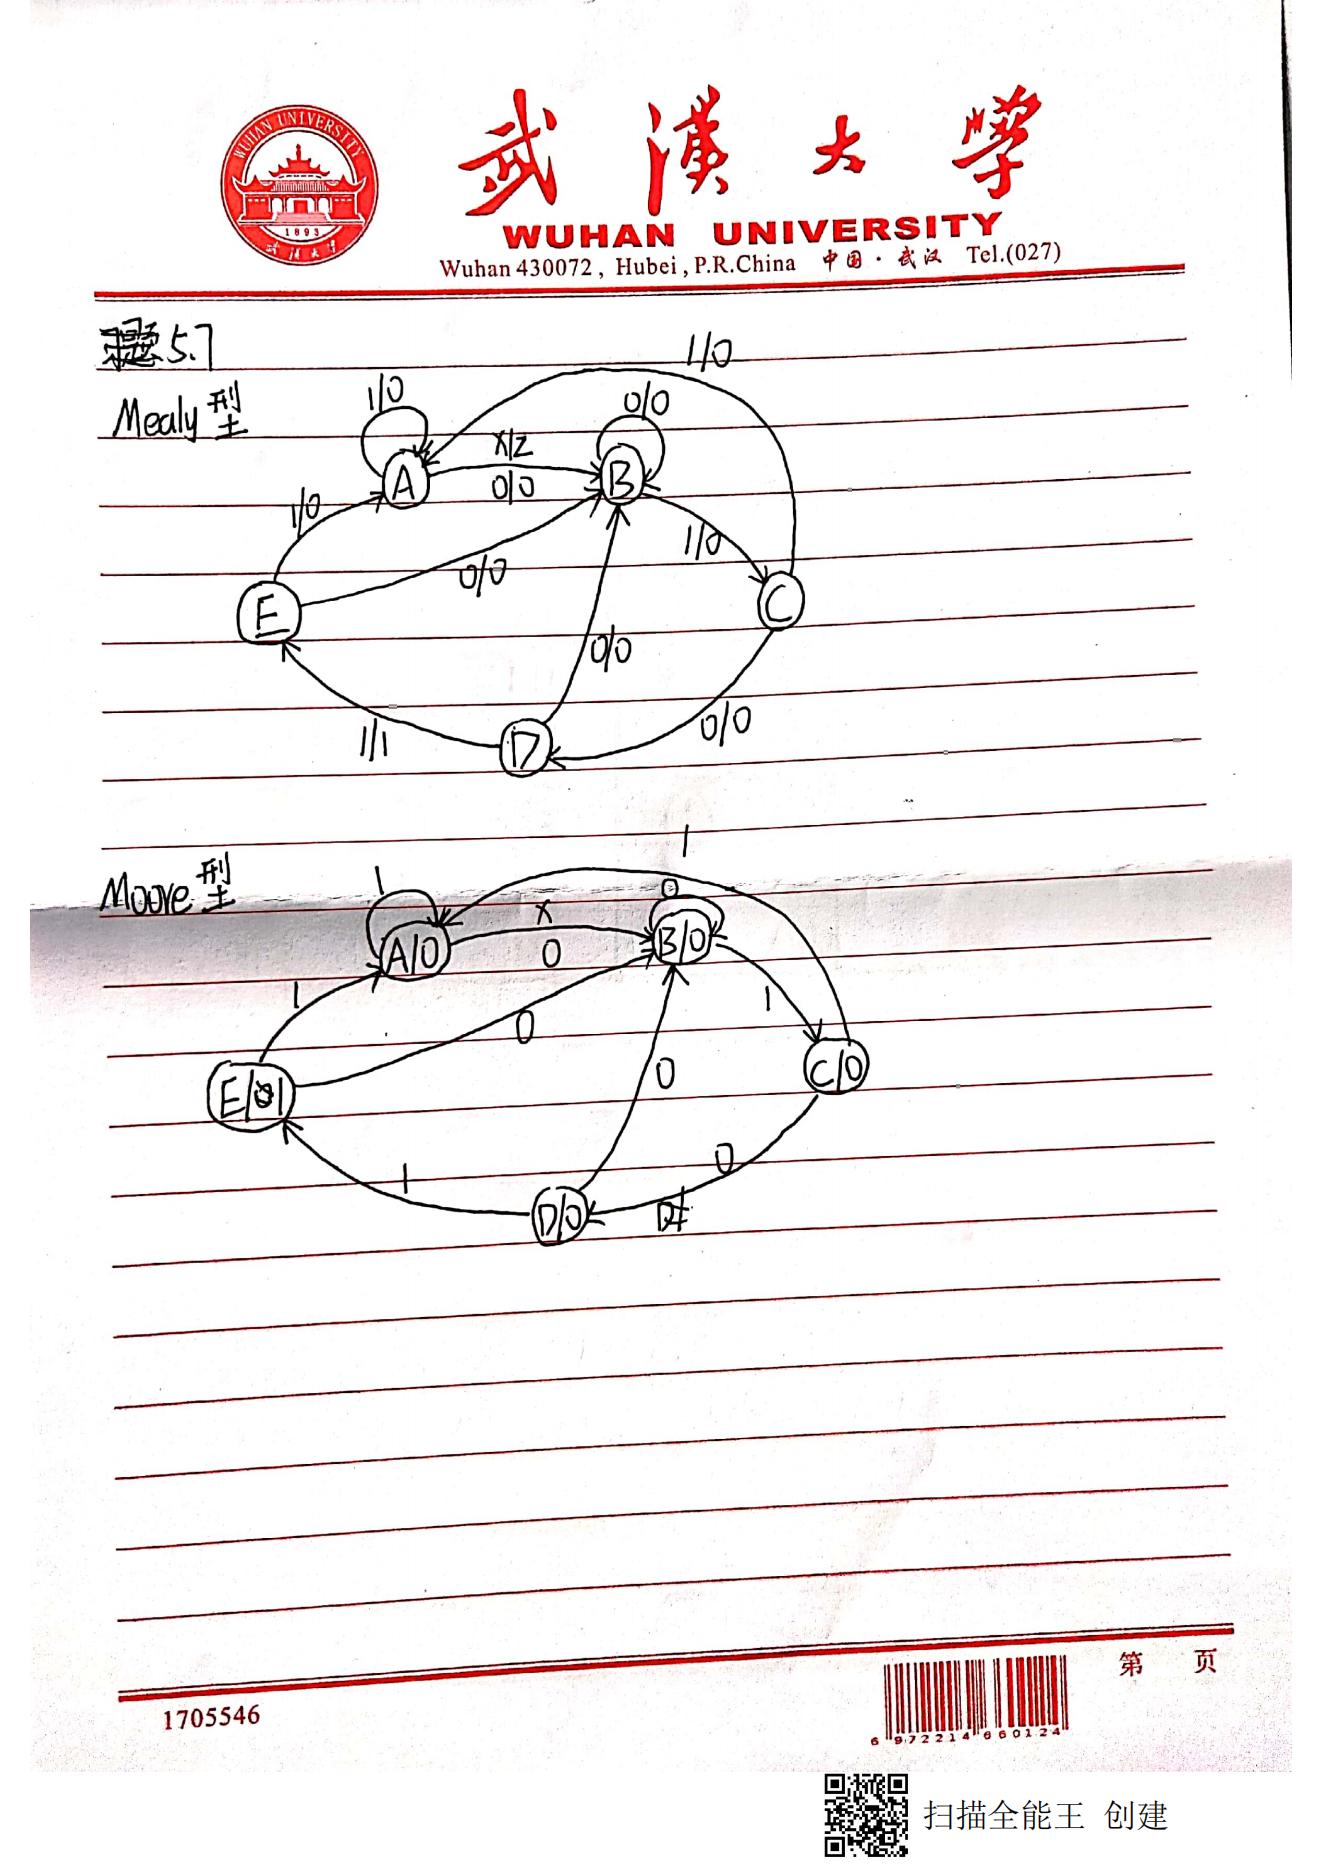 WUHAN UNIVERSITY
1893
武汉大学
武漢大學
WUHAN UNIVERSITY
Wuhan 430072, Hubei, P.R.China 中国·武汉 Tel.(027)
题5.7
Mealy型
1/0
1/0
0/0
A
x/z
0/0
B
1/0
1/0
0/0
E
C
0/0
1/1
D
0/0
Moore型
1
1
0
A/0
x
0
B/0
1
1
0
E/01
0
C/0
1
0
D/0
第 页
1705546
6 972214 660124
扫描全能王 创建